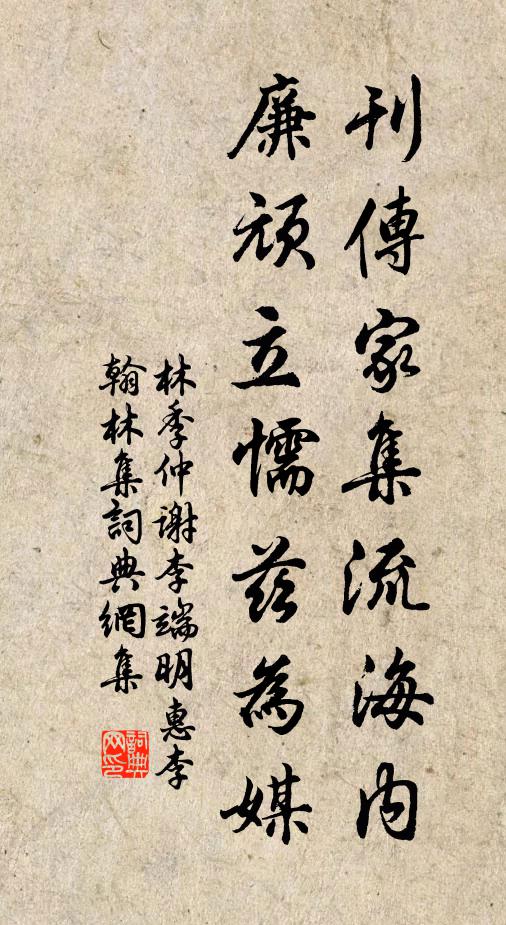 刊傳家集流海内
廉頑立懦茲為媒
林季仲謝李端明惠李
翰林集詞典網集
詞典網印